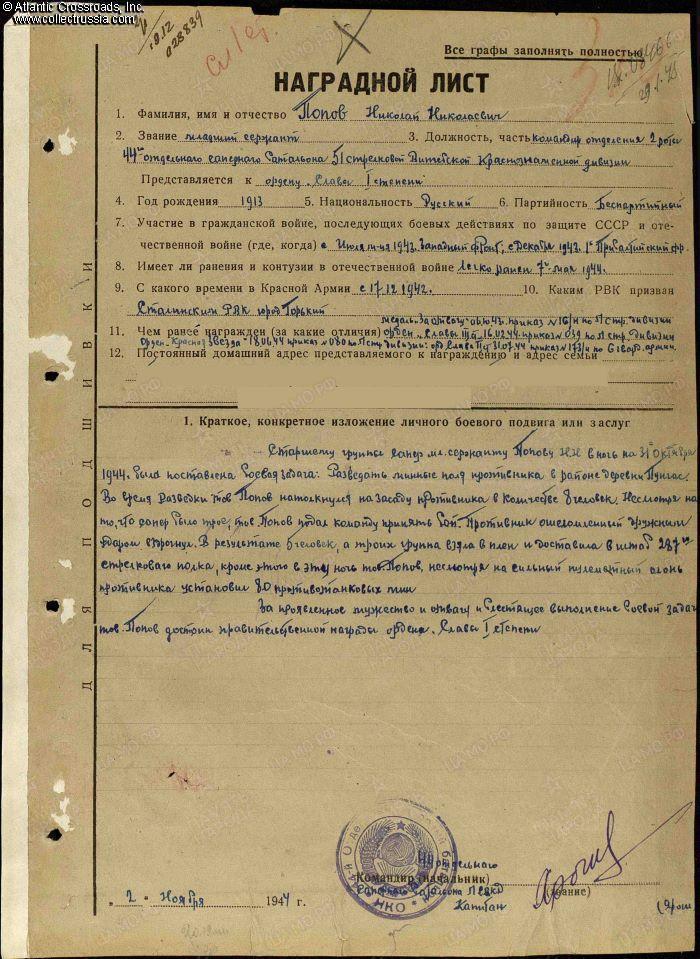 © Atlantic Crossroads, Inc.
www.collectrussia.com
19.12
028839
29.1.45
Все графы заполнять полностью
НАГРАДНОЙ ЛИСТ
1. Фамилия, имя и отчество Попов Николай Николаевич
2. Звание младший сержант 3. Должность, часть командир отделения 2 роты
44го отдельного саперного батальона 51 стрелковой Витебской Краснознаменной дивизии
Представляется к ордену „Славы I степени
4. Год рождения 1913 5. Национальность Русский 6. Партийность Беспартийный
7. Участие в гражданской войне, последующих боевых действиях по защите СССР и оте-
чественной войне (где, когда) с Июля м-ца 1943. Западный фронт, с Декабря 1943. 1й Прибалтийский фр.
8. Имеет ли ранения и контузии в отечественной войне легко ранен 7го мая 1944.
9. С какого времени в Красной Армии с 17.12.1942. 10. Каким РВК призван
Сталинским РВК город Горький
11. Чем ранее награжден (за какие отличия)
медаль „За отвагу" приказ по стр. дивизии
орден „Славы III ст. 16.02.44 приказ N 039 по стр. дивизии
Орден „Красной Звезды" 18.06.44 приказ по стр дивизии: орд Слава II ст 31.07.44 приказ по 6 гвард. армии.
12. Постоянный домашний адрес представляемого к награждению и адрес семьи
ДЛЯ ПОДШИВКИ
1. Краткое, конкретное изложение личного боевого подвига или заслуг
Старшему группы сапер мл. сержанту Попову Н Н в ночь на 31е октября
1944. была поставлена боевая задача: Разведать минные поля противника в районе деревни Пунгас.
Во время разведки тов Попов натолкнулся на засаду противника в количестве 8 человек. Несмотря на
то, что сапер было трое, тов Попов подал команду принять бой. Противник ошеломленный дружным
ударом дрогнул. В результате 5 человек, а троих группа взяла в плен и доставила в штаб 287го
стрелкового полка, кроме этого в эту ночь тов Попов, несмотря на сильный пулеметный огонь
противника установил 80 противотанковых мин
За проявленное мужество и отвагу и блестящее выполнение боевой задач
тов. Попов достоин правительственной награды ордена „Славы I степени
44 отдельного
Командир (начальник)
Саперного батальона
Капитан
(звание)
НКО
„ 2 " Ноября 1944 г.
ЦАМО.РФ